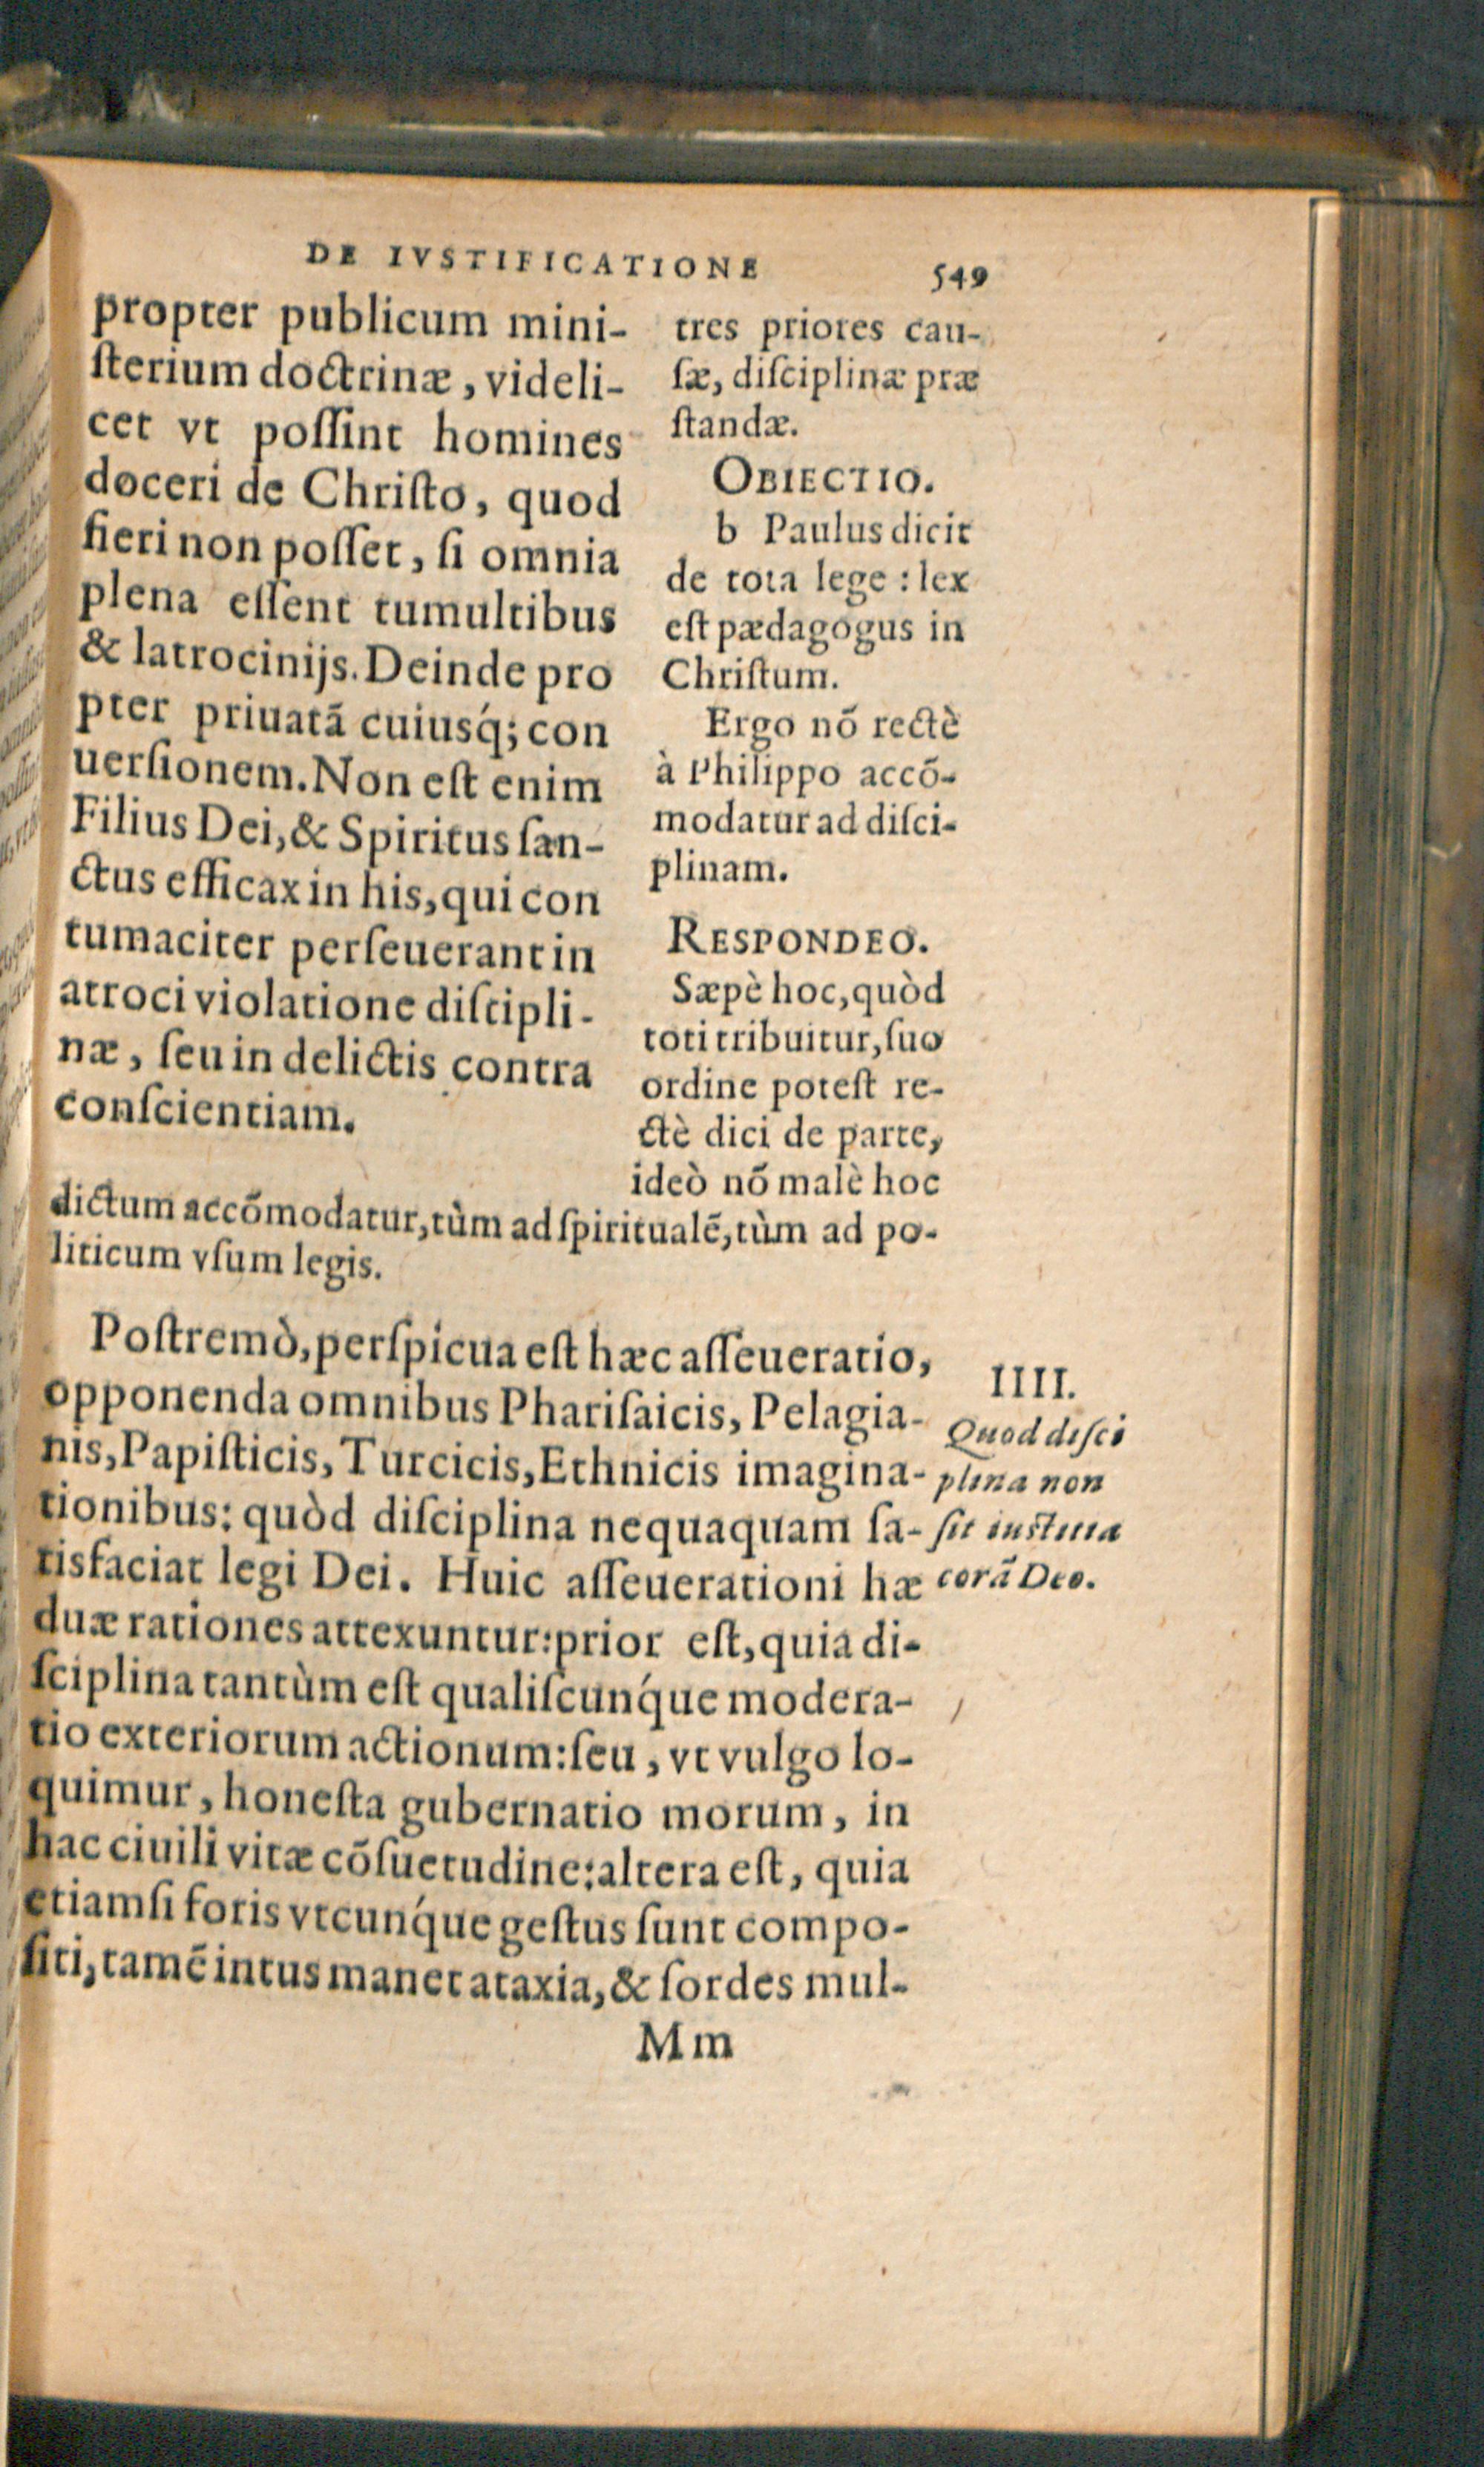 DE IVSTIFICATIONE 549
propter publicum mini-
ſterium doctrinæ, videli-
cet vt poſſint homines
doceri de Chriſto, quod
fieri non poſſet, ſi omnia
plena eſſent tumultibus
& latrocinijs. Deinde pro
pter priuatã cuiusq́; con
uerſionem. Non eſt enim
Filius Dei, & Spiritus ſan-
ctus efficax in his, qui con
tumaciter perſeuerant in
atroci violatione diſcipli-
næ, ſeu in delictis contra
conſcientiam.
tres priores cau-
ſæ, diſciplinæ præ
ſtandæ.
OBIECTIO.
b Paulus dicit
de tota lege : lex
eſt pædagogus in
Chriſtum.
Ergo nõ rectè
à Philippo accõ-
modatur ad diſci-
plinam.
RESPONDEO.
Sæpè hoc, quòd
toti tribuitur, ſuo
ordine poteſt re-
ctè dici de parte,
ideò nõ malè hoc
dictum accõmodatur, tùm ad ſpiritualẽ, tùm ad po-
liticum vſum legis.
Poſtremò, perſpicua eſt hæc aſſeueratio,
opponenda omnibus Phariſaicis, Pelagia-
nis, Papiſticis, Turcicis, Ethnicis imagina-
tionibus: quòd diſciplina nequaquam ſa-
tisfaciat legi Dei. Huic aſſeuerationi hæ
duæ rationes attexuntur: prior eſt, quia di-
ſciplina tantùm eſt qualiſcunq́ue modera-
tio exteriorum actionum: ſeu, vt vulgo lo-
quimur, honeſta gubernatio morum, in
hac ciuili vitæ cõſuetudine: altera eſt, quia
etiamſi foris vtcunq́ue geſtus ſunt compo-
ſiti, tamẽ intus manet ataxia, & ſordes mul-
IIII.
Quod diſci
plina non
ſit iuſtitia
corã Deo.
Mm